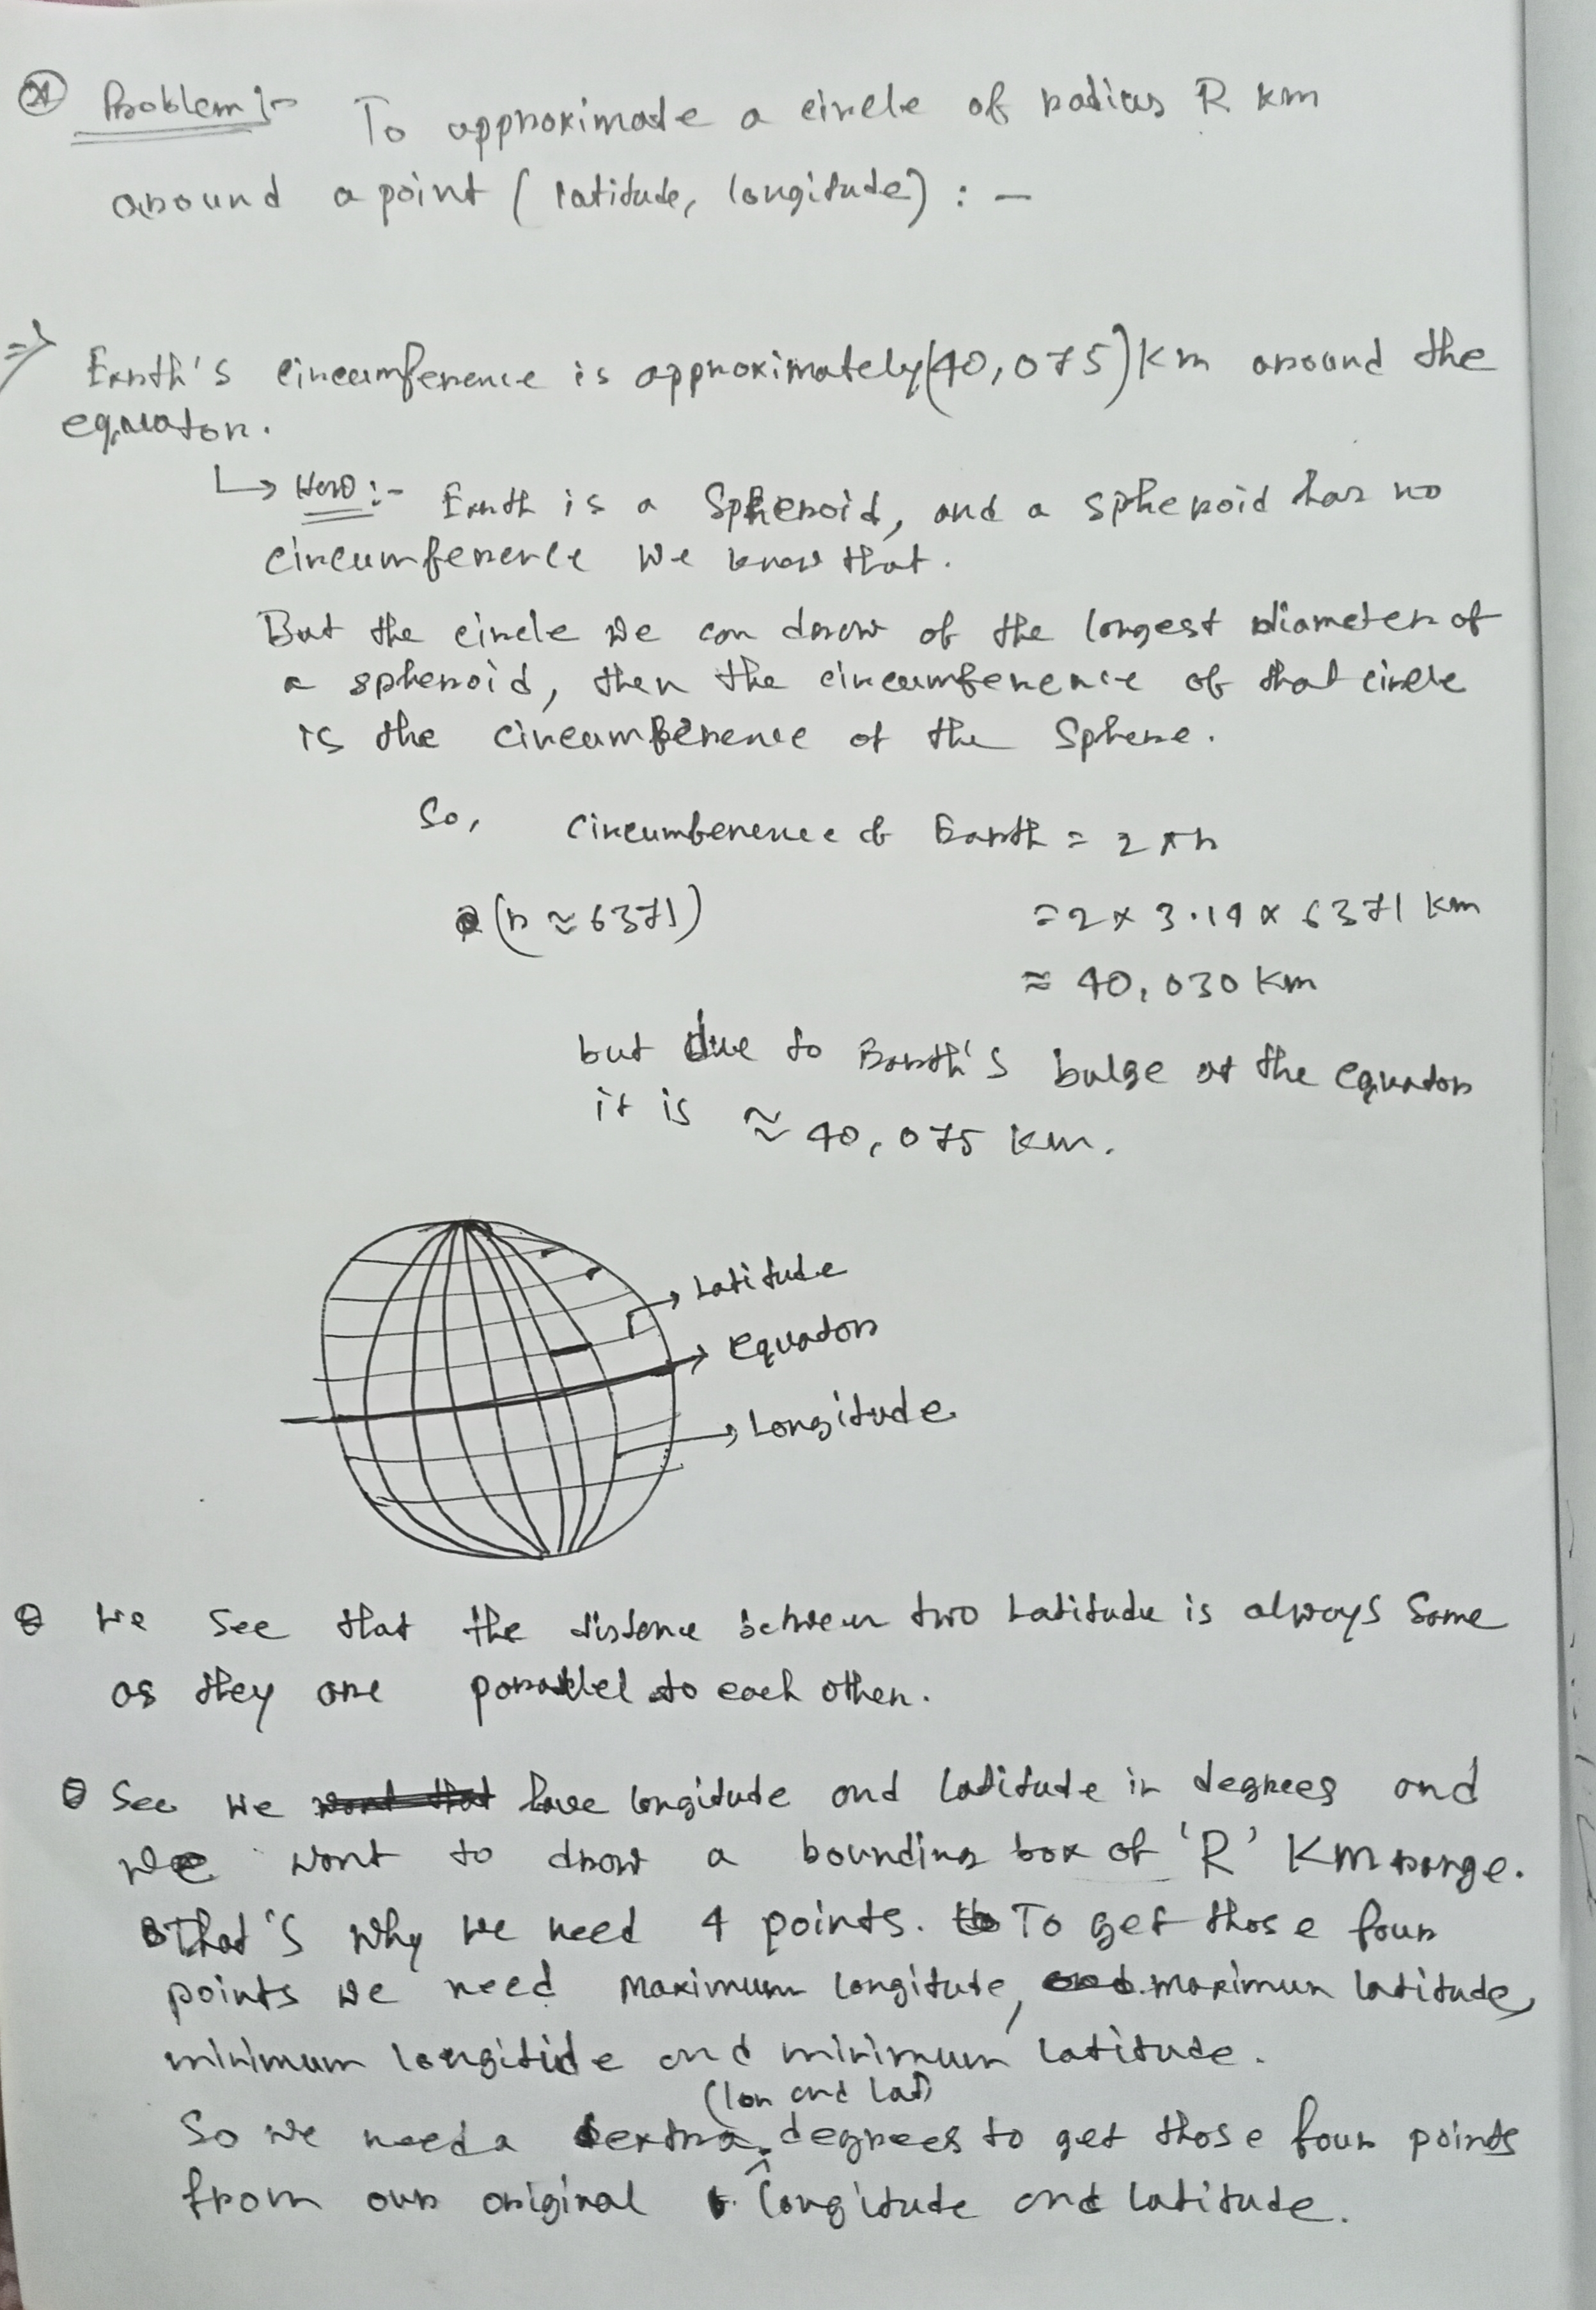 Problem :- To approximate a circle of radius R km
around a point ( latitude, longitude) : -
⇒ Earth's circumference is approximately (40,075) km around the
equator.
↳ How :- Earth is a Spheroid, and a spheroid has no
circumference we know that.
But the circle we can draw of the longest diameter of
a spheroid, then the circumference of that circle
is the circumference of the Sphere.
So, circumference of Earth = 2πr
(r ≈ 6371) = 2 × 3.14 × 6371 km
≈ 40,030 km
but due to Earth's bulge at the equator
it is ≈ 40,075 km.
Latitude
equator
Longitude
We see that the distance between two Latitude is always same
as they are parallel to each other.
See we have longitude and latitude in degrees and
we want to draw a bounding box of 'R' Km range.
That's why we need 4 points. To get those four
points we need maximum longitute, maximum latitude,
minimum longitide and minimum latitude.
(lon and lat)
So we need a extra degrees to get those four points
from our original longitude and latitude.